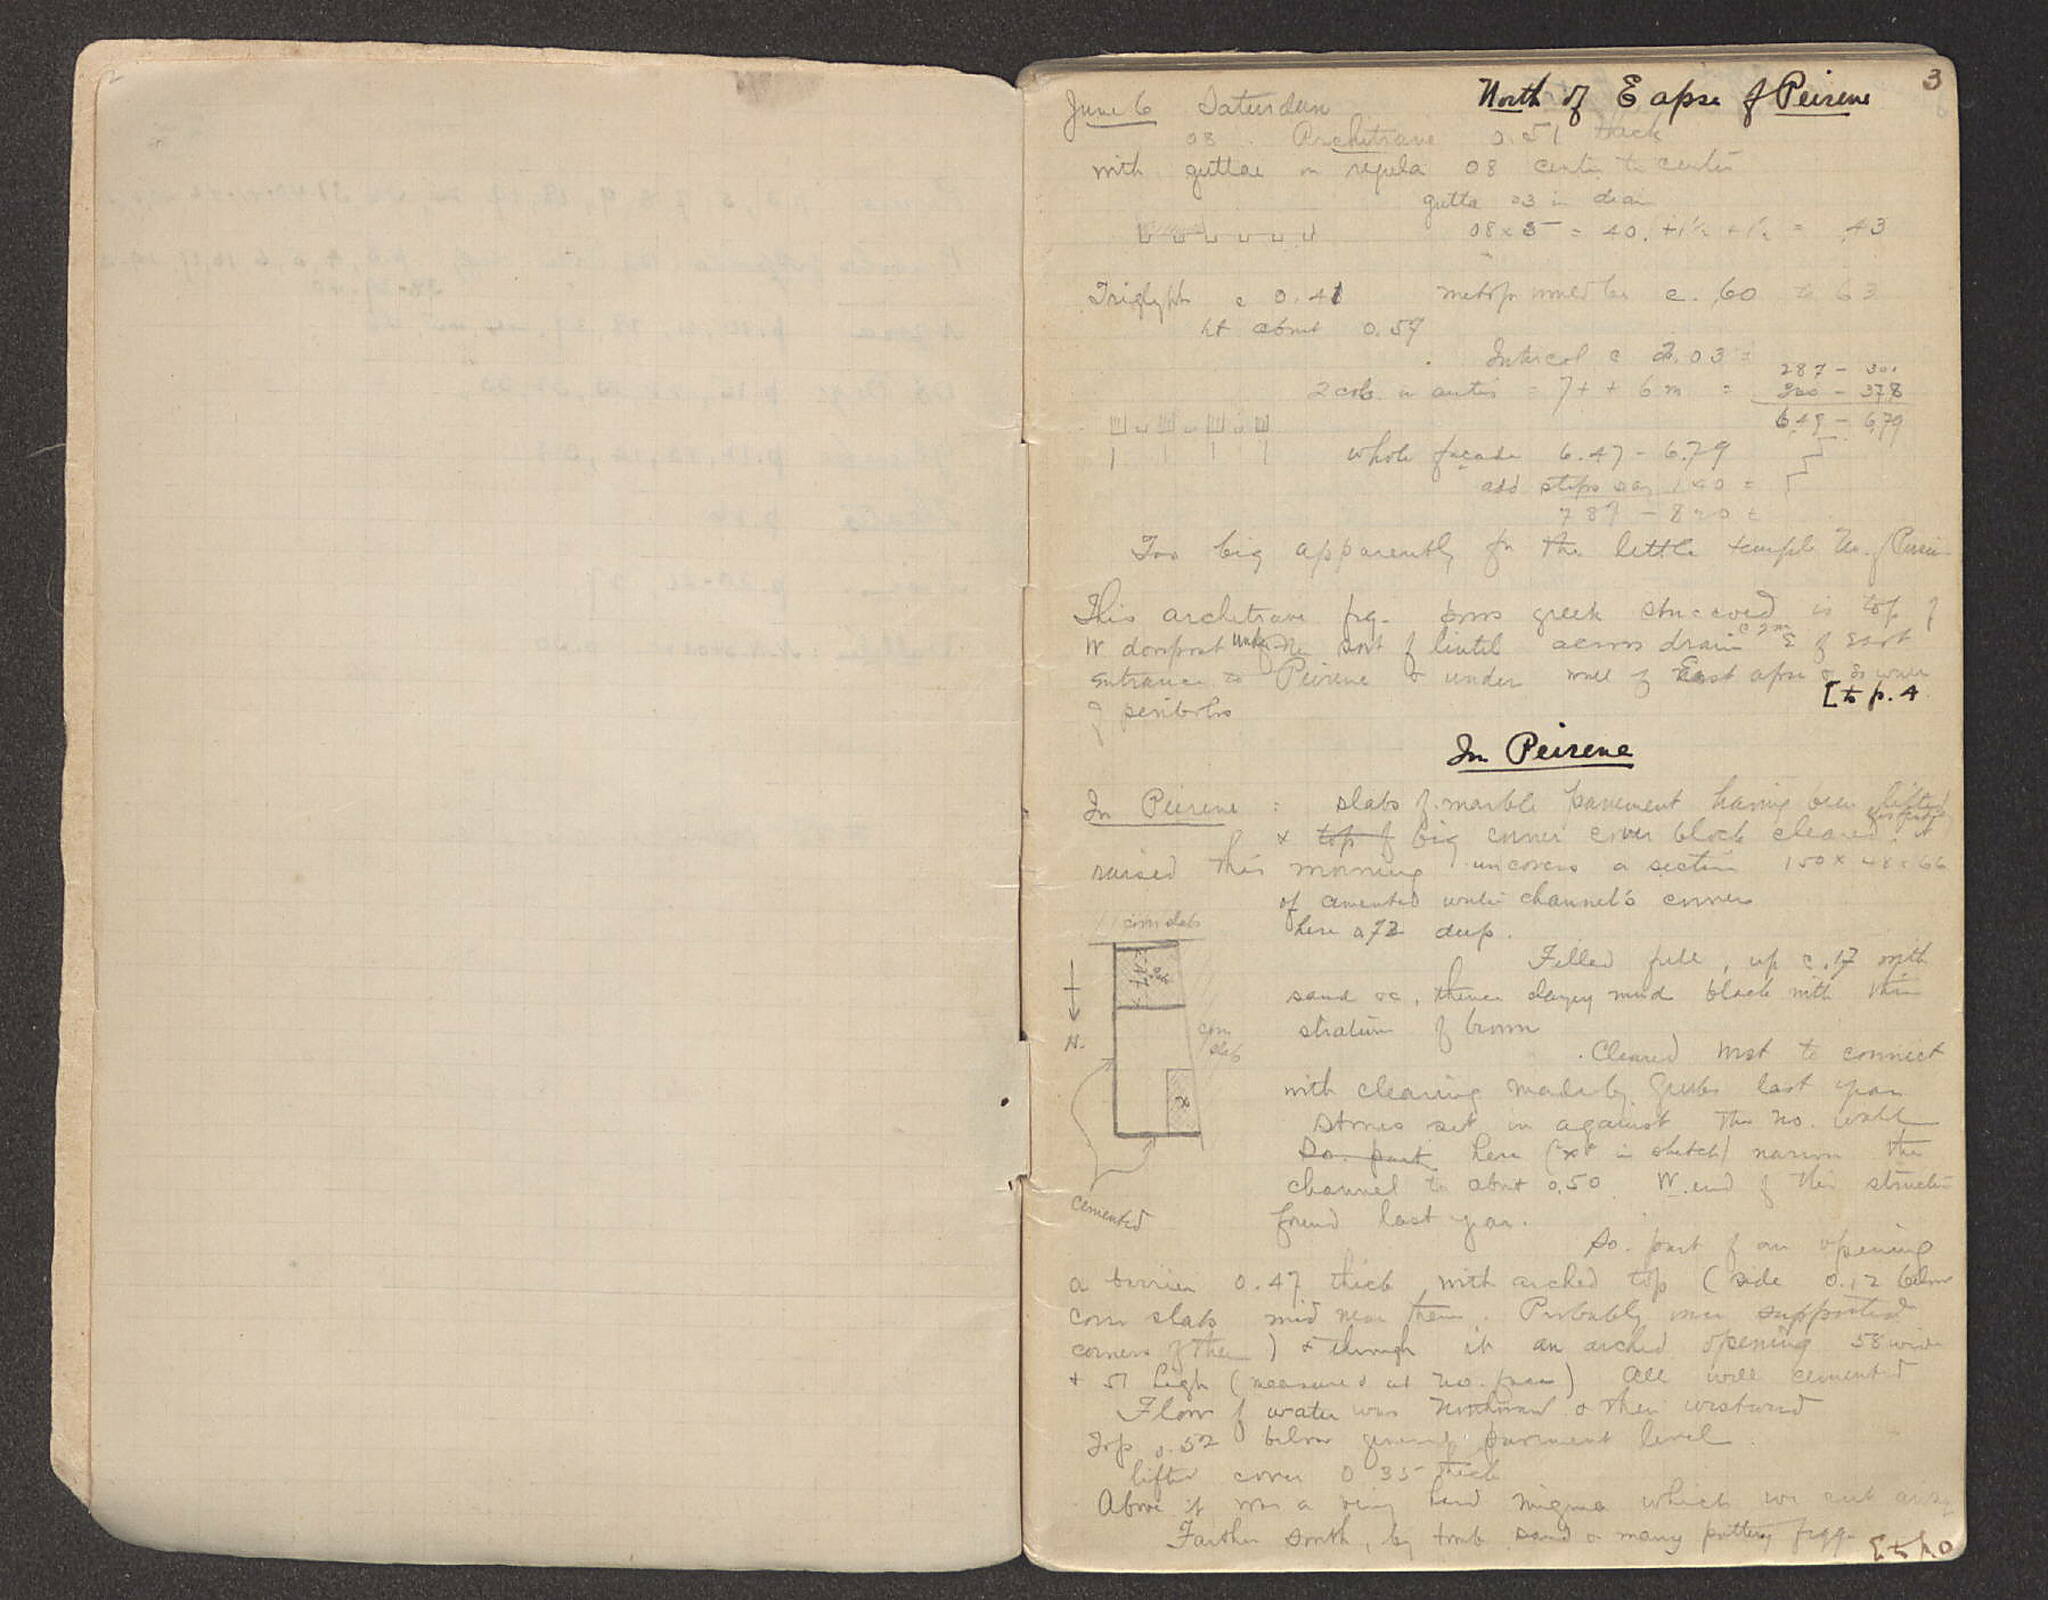 3
North of E apse of Peirene
June 6 Saturday
08. Architrave 0.51 thick
with guttae on regula 08 center to center
gutta 03 in diam
08 x 5 = 40. + 1½ + 1½ = .43
Triglyph c 0.41 metope would be c. .60 to 63
ht about 0.57
Intercol c 2.03 =
287 - 301
2 cols in antis = 7 + + 6 m = 360 - 378
6.49 - 6.79
whole façade 6.47 - 6.79
add steps say 1 40 =
789 - 820 ±
Too big apparently for the little temple No. of Peirene
This architrave frg. poros greek stuccoed is top of
W doorpost under the sort of lintel across drain c 2m E of East
entrance to Peirene & under wall of East apse & So wall
of peribolos
[to p. 4
In Peirene
In Peirene : slabs of marble pavement having been lifted
& top of big corner cover block cleared. it
raised this morning uncovers a section 150 x 48 x 66
of cemented water channel's corner
here 0.72 deep.
cover slab
Filled full, up c. .17 with
sand &c, thence clayey mud black with thin
stratum of brown
cover slab
N.
x
Cleared West to connect
with clearing made by Grubs last year
Stones set in against the No. wall
So. part here ("x" in sketch) narrow the
channel to about 0.50. W. end of this structure
found last year.
cemented
So. part of an opening
a barrier 0.47 thick with arched top (side 0.12 below
cover slabs mid near them. Probably once supported
corners of them) & through it an arched opening 58 wide
& 51 high (measured at No. face) All well cemented
Flow of water was Northward & then westward
Top 0.52 below general pavement level.
lifted cover 0 35 thick
Above it was a very hard migma which we cut away
Farther south, by tomb sand & many pottery frgg.